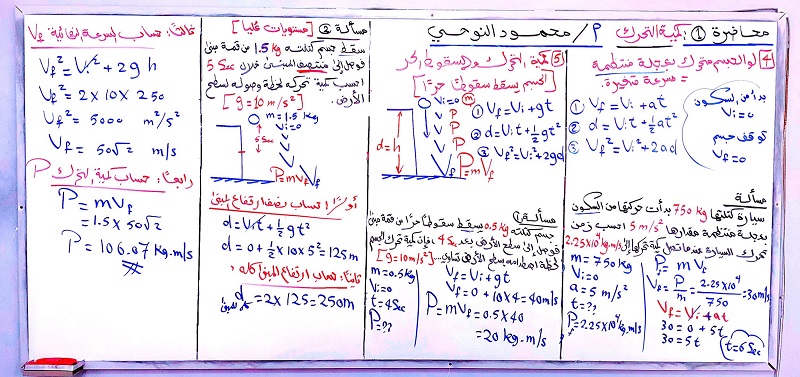 محاضرة ① : كمية التحرك م/ محمود النوحي
④ لو الجسم متحرك بعجلة منتظمة
= سرعة متغيرة.
① Vf = Vi + at
② d = Vit + ½at²
③ Vf² = Vi² + 2ad
بدأ من السكون
Vi = 0
توقف جسم
Vf = 0
مسألة
سيارة كتلتها 750 kg بدأت حركتها من السكون
بعجلة منتظمة مقدارها 5 m/s² احسب زمن
تحرك السيارة عندما تصل كمية تحركها إلى 2.25×10⁴ kg.m/s
m = 750 kg
Vi = 0
a = 5 m/s²
t = ??
Pf = 2.25×10⁴ kg.m/s
Pf = m Vf
Vf = Pf/m = 2.25×10⁴/750 = 30 m/s
Vf = Vi + at
30 = 0 + 5t
30 = 5t
t = 6 Sec
⑤ كمية التحرك والسقوط الحر
[الجسم يسقط سقوطًا حرًا]
m
Vi = 0
① Vf = Vi + gt
② d = Vit + ½gt²
③ Vf² = Vi² + 2gd
d = h
V P
V P
V P
Vf
P = m Vf
مسألة ①
جسم كتلته 0.5 kg يسقط سقوطًا حرًا من قمة مبنى
فوصل إلى سطح الأرض بعد 4 Sec فإن كمية تحرك الجسم
لحظة اصطدامه بسطح الأرض تساوي... [g = 10 m/s²]
m = 0.5 kg
Vi = 0
t = 4 Sec
P = ??
Vf = Vi + gt
Vf = 0 + 10×4 = 40 m/s
P = mVf = 0.5×40
= 20 kg.m/s
مسألة ② [مستويات عليا]
سقط جسم كتلته 1.5 kg من قمة مبنى
فوصل إلى منتصف المبنى خلال 5 Sec
احسب كمية تحركه لحظة وصوله لسطح
الأرض. [g = 10 m/s²]
m = 1.5 kg
Vi = 0
5 Sec
V
V
V
Vf
P = mVf
أولًا: حساب نصف ارتفاع المبنى
d = Vit + ½gt²
d = 0 + ½×10×5² = 125 m
ثانيًا: حساب ارتفاع المبنى كله
d = 2×125 = 250 m
ثالثًا: حساب السرعة النهائية Vf
Vf² = Vi² + 2gh
Vf² = 2×10×250
Vf² = 5000 m²/s²
Vf = 50√2 m/s
رابعًا: حساب كمية التحرك P
P = mVf
= 1.5×50√2
P = 106.07 kg.m/s